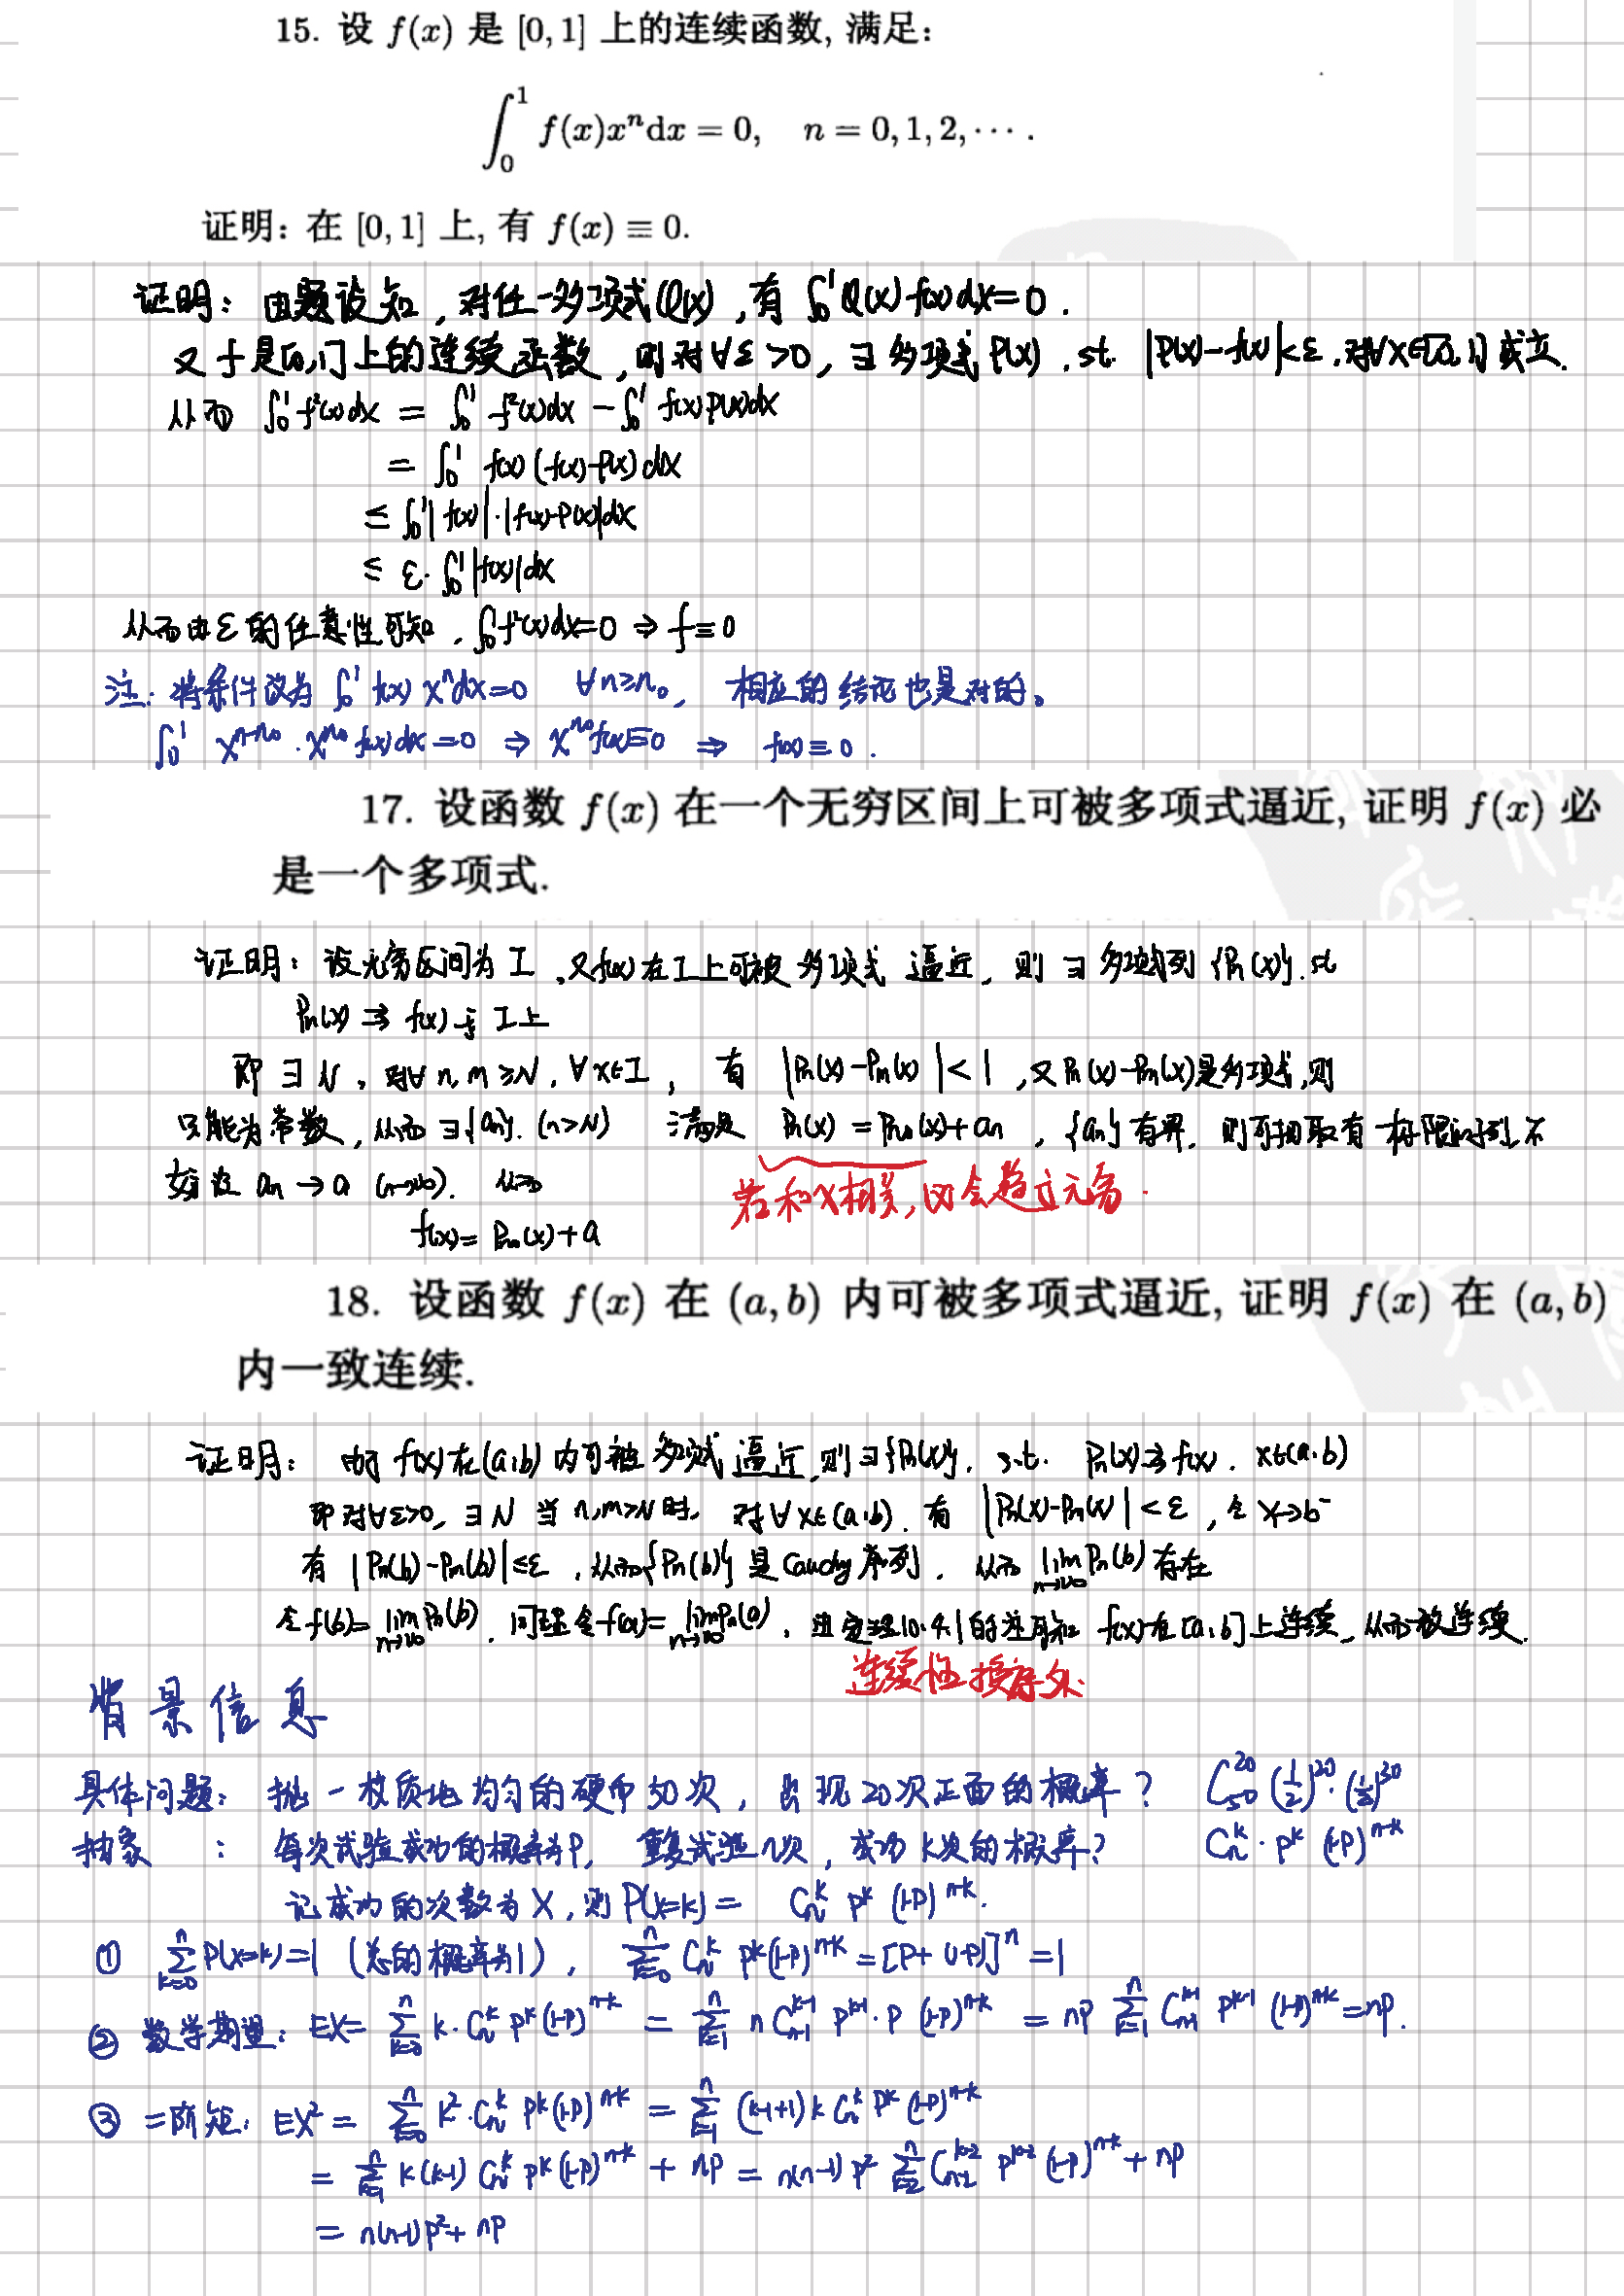 15. 设 f(x) 是 [0,1] 上的连续函数, 满足:
∫₀¹ f(x)xⁿdx = 0, n = 0,1,2,⋯.
证明: 在 [0,1] 上, 有 f(x) ≡ 0.
证明: 由题设知, 对任一多项式Q(x), 有 ∫₀¹ Q(x) f(x) dx = 0.
又 f 是[0,1]上的连续函数, 则对∀ε>0, ∃ 多项式 P(x), st. |P(x)-f(x)|<ε, 对∀x∈[0,1] 成立.
从而 ∫₀¹ f²(x)dx = ∫₀¹ f²(x)dx - ∫₀¹ f(x)P(x)dx
= ∫₀¹ f(x)(f(x)-P(x))dx
≤ ∫₀¹ |f(x)|·|f(x)-P(x)|dx
≤ ε·∫₀¹ |f(x)|dx
从而由ε的任意性可知, ∫₀¹ f²(x)dx=0 ⇒ f≡0
注: 将条件改为 ∫₀¹ f(x) xⁿdx=0 ∀n≥n₀, 相应的结论也是对的。
∫₀¹ x^{n-n₀}·x^{n₀} f(x)dx=0 ⇒ x^{n₀}f(x)≡0 ⇒ f(x)≡0.
17. 设函数 f(x) 在一个无穷区间上可被多项式逼近, 证明 f(x) 必
是一个多项式.
证明: 设无穷区间为 I, 又f(x)在I上可被多项式逼近, 则∃多项式列{Pₙ(x)}. st
Pₙ(x) ⇉ f(x) 于 I上
即 ∃ N, 对∀ n, m ≥N, ∀x∈I, 有 |Pₙ(x)-Pₘ(x)|<1, 又Pₙ(x)-Pₘ(x)是多项式, 则
只能为常数, 从而∃{aₙ}. (n>N) 满足 Pₙ(x) = P_{n₀}(x)+aₙ, {aₙ}有界, 则可抽取有极限的子列, 不
妨设 aₙ→a (n→∞). 从而
若和x相关, 则会趋于无穷.
f(x)= P_{n₀}(x)+a
18. 设函数 f(x) 在 (a,b) 内可被多项式逼近, 证明 f(x) 在 (a,b)
内一致连续.
证明: 由于 f(x)在(a,b)内可被多项式逼近, 则∃{Pₙ(x)}, s.t. Pₙ(x)⇉f(x). x∈(a,b)
即对∀ε>0, ∃N 当 n,m>N时, 对∀x∈(a,b). 有 |Pₙ(x)-Pₘ(x)|<ε, 令 x→b⁻
有 |Pₙ(b)-Pₘ(b)|≤ε, 从而{Pₙ(b)}是Cauchy序列. 从而 lim_{n→∞}Pₙ(b)存在
令f(b)=lim_{n→∞}Pₙ(b). 同理令f(a)=lim_{n→∞}Pₙ(a). 由定理10.4.1的注可知 f(x)在[a,b]上连续, 从而一致连续.
连续性推导文.
背景信息
具体问题: 抛一枚质地均匀的硬币50次, 出现20次正面的概率? C₅₀²⁰(1/2)²⁰·(1/2)³⁰
抽象: 每次试验成功的概率为P, 重复试验n次, 成功k次的概率? Cₙᵏ·Pᵏ(1-P)ⁿ⁻ᵏ
记成功的次数为X, 则P(X=k)= Cₙᵏ Pᵏ (1-P)ⁿ⁻ᵏ.
① ∑_{k=0}^{n}P(X=k)=1 (总的概率为1), ∑_{k=0}^{n} Cₙᵏ Pᵏ(1-P)ⁿ⁻ᵏ=[P+(1-P)]ⁿ=1
② 数学期望: EX= ∑_{k=0}^{n} k·Cₙᵏ Pᵏ(1-P)ⁿ⁻ᵏ = ∑_{k=1}^{n} n C_{n-1}^{k-1} P^{k-1}·P (1-P)ⁿ⁻ᵏ = nP ∑_{k=1}^{n} C_{n-1}^{k-1} P^{k-1} (1-P)ⁿ⁻ᵏ=nP.
③ 二阶矩: EX² = ∑_{k=0}^{n} k²·Cₙᵏ Pᵏ(1-P)ⁿ⁻ᵏ = ∑_{k=1}^{n} (k-1+1)k Cₙᵏ Pᵏ (1-P)ⁿ⁻ᵏ
= ∑_{k=1}^{n} k(k-1) Cₙᵏ Pᵏ(1-P)ⁿ⁻ᵏ + nP = n(n-1)P² ∑_{k=2}^{n} C_{n-2}^{k-2} P^{k-2} (1-P)ⁿ⁻ᵏ + nP
= n(n-1)P²+nP